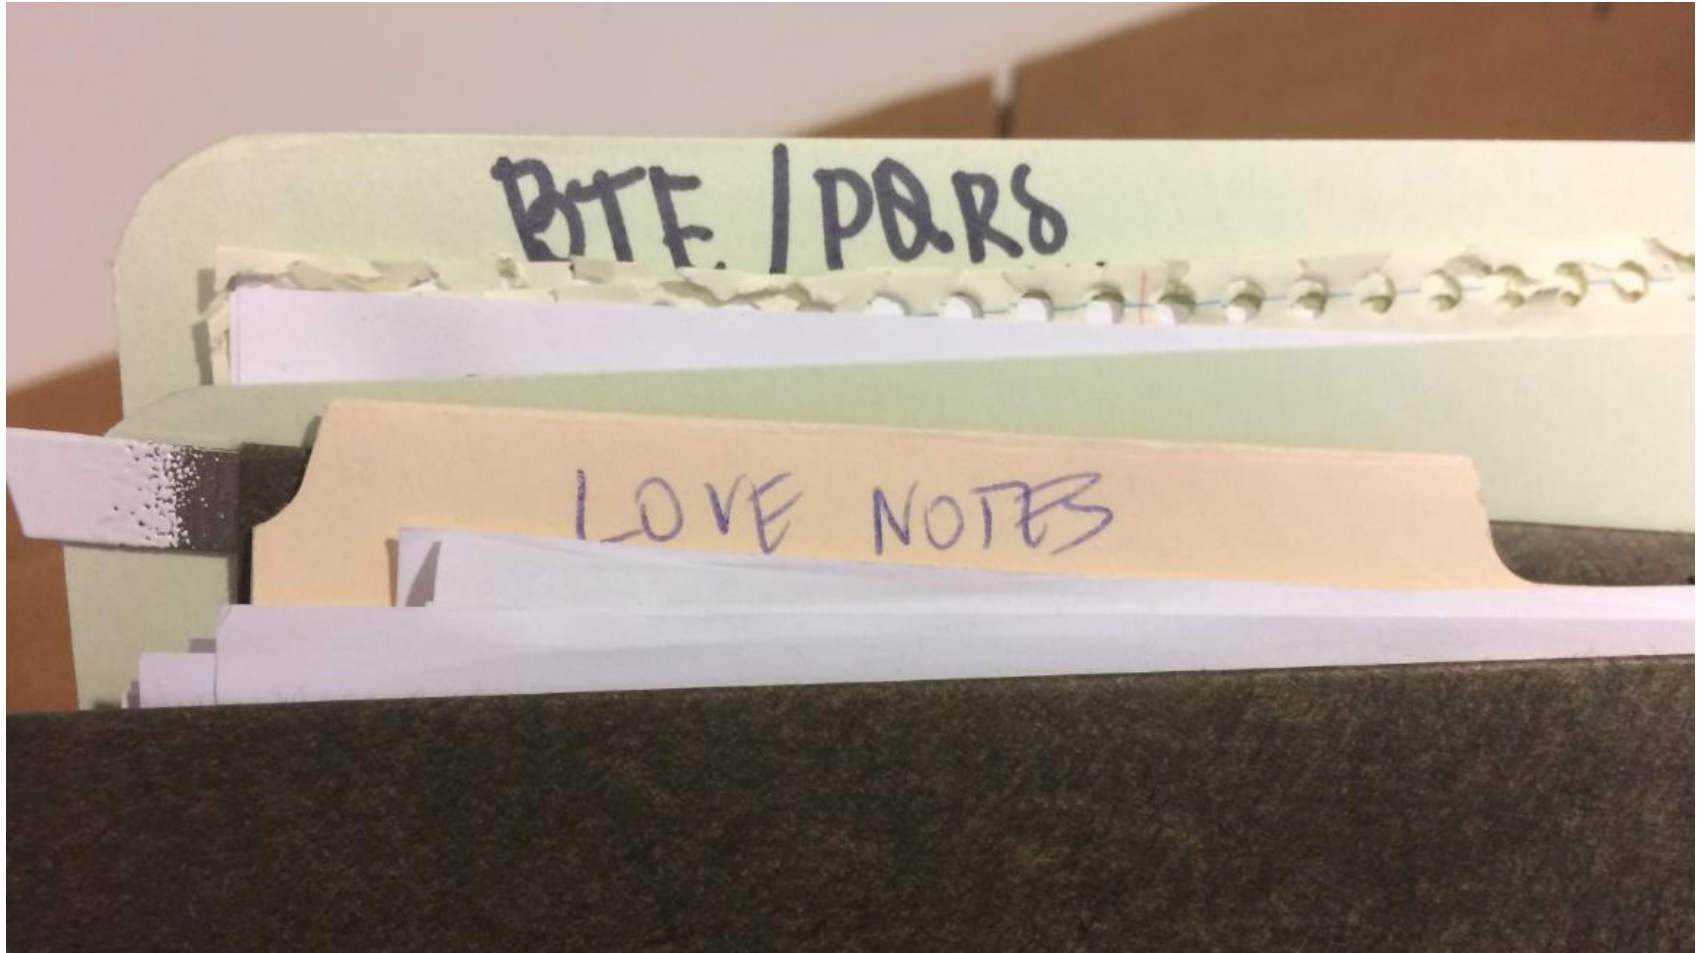 BTE/PQRS
LOVE NOTES